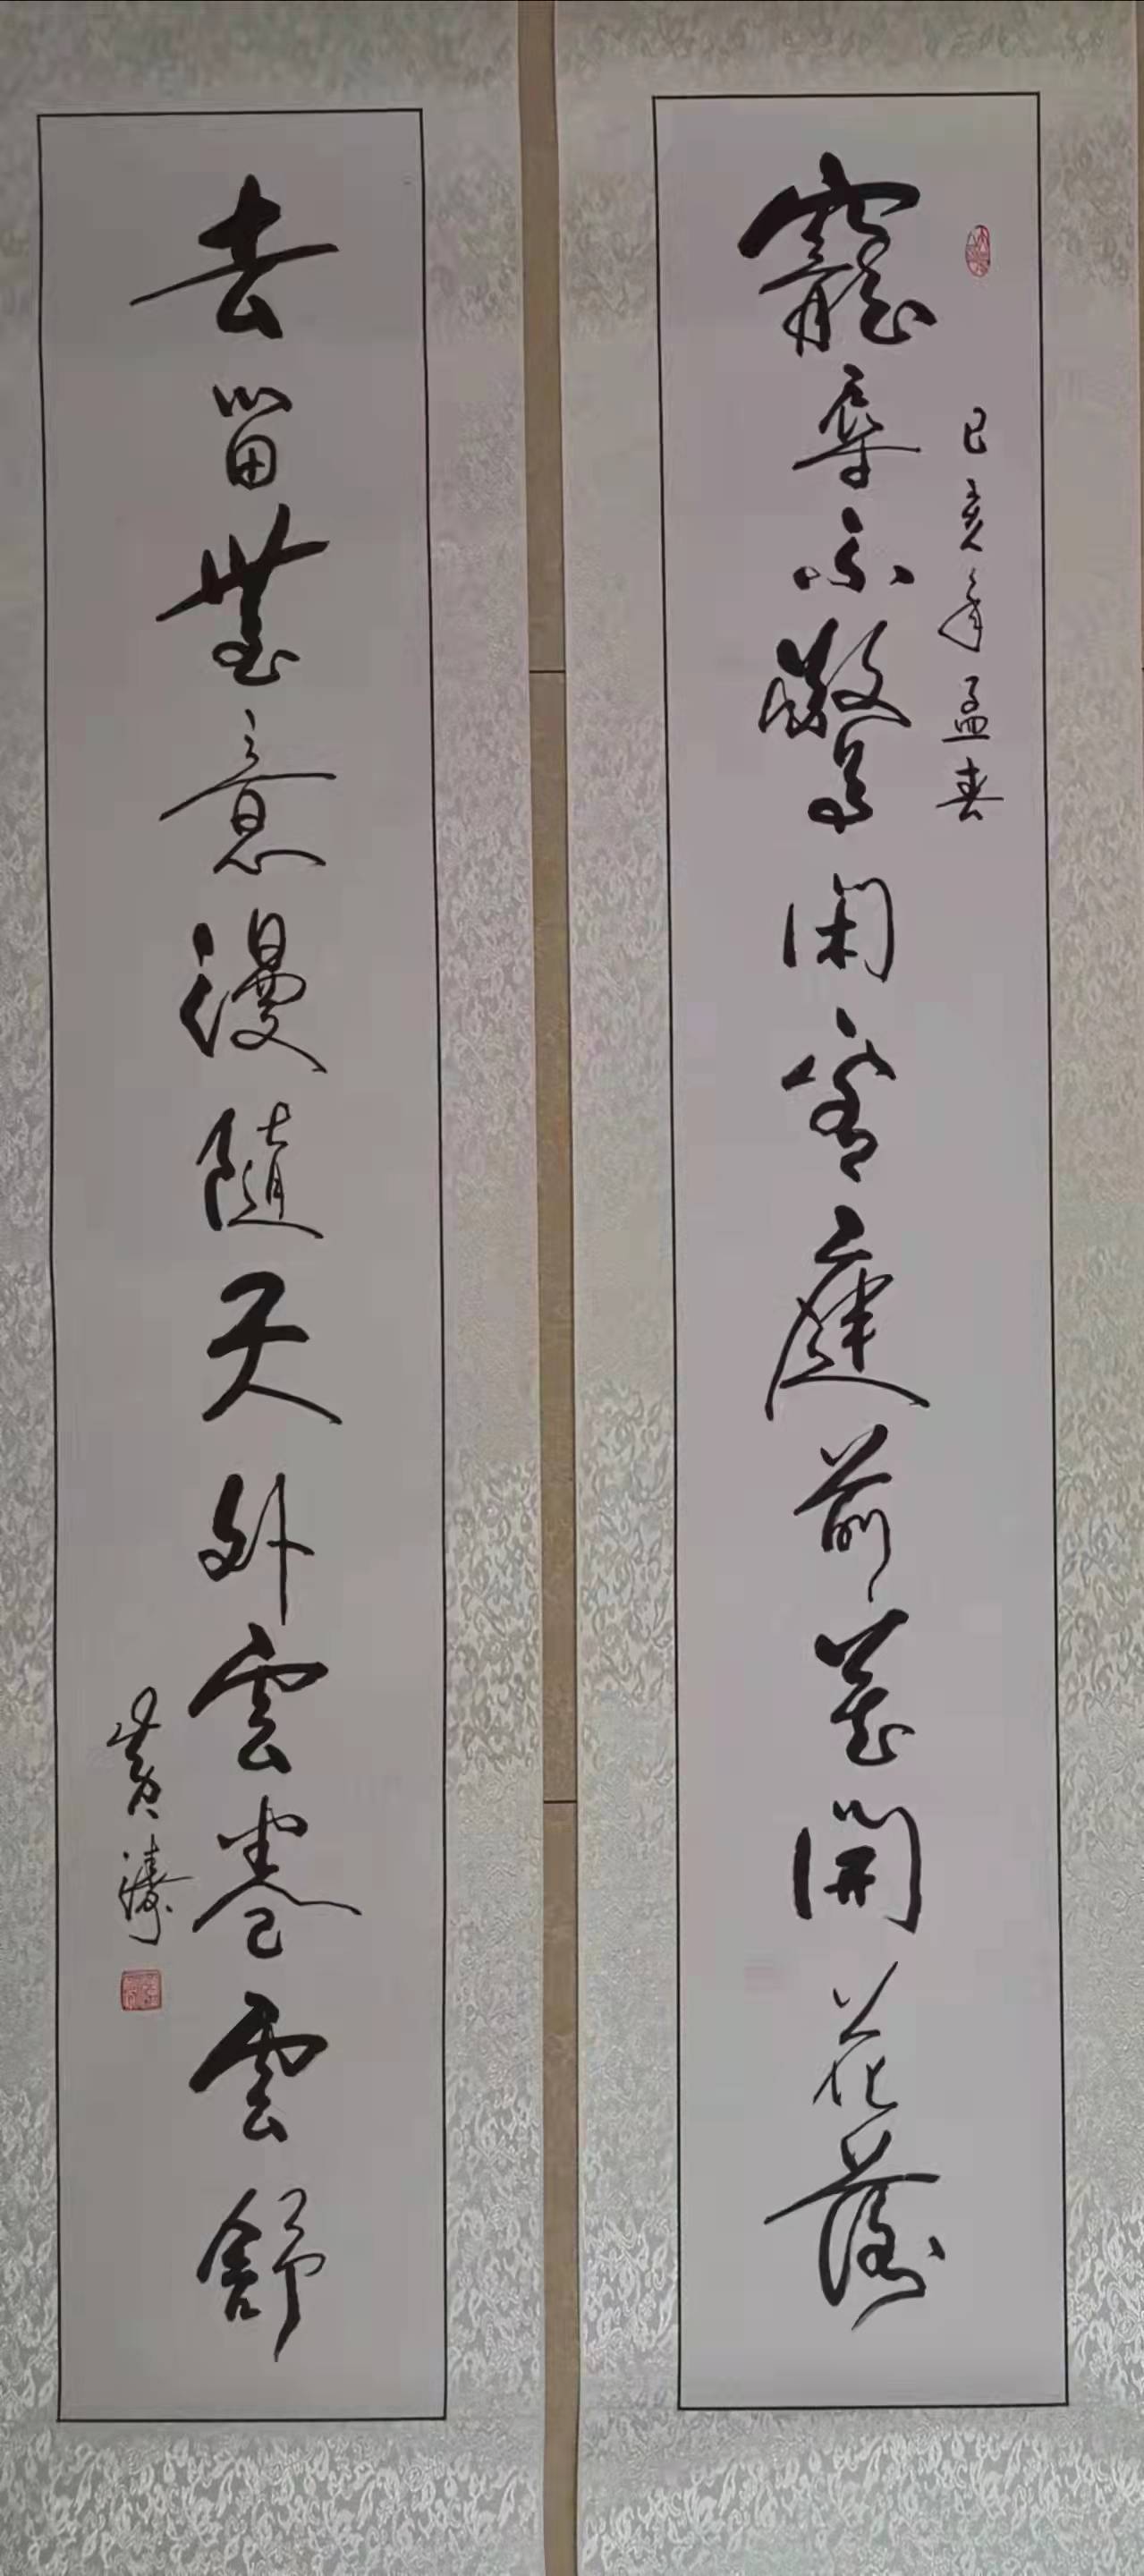 寵辱不驚閑看庭前花開花落
己亥年孟春
去留無意漫隨天外雲卷雲舒
黄